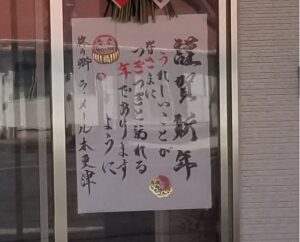 謹賀新年
うれしいことが
みなさまに
つぎつぎと訪れる
年でありますように
牧の郷 ラ・メール木更津